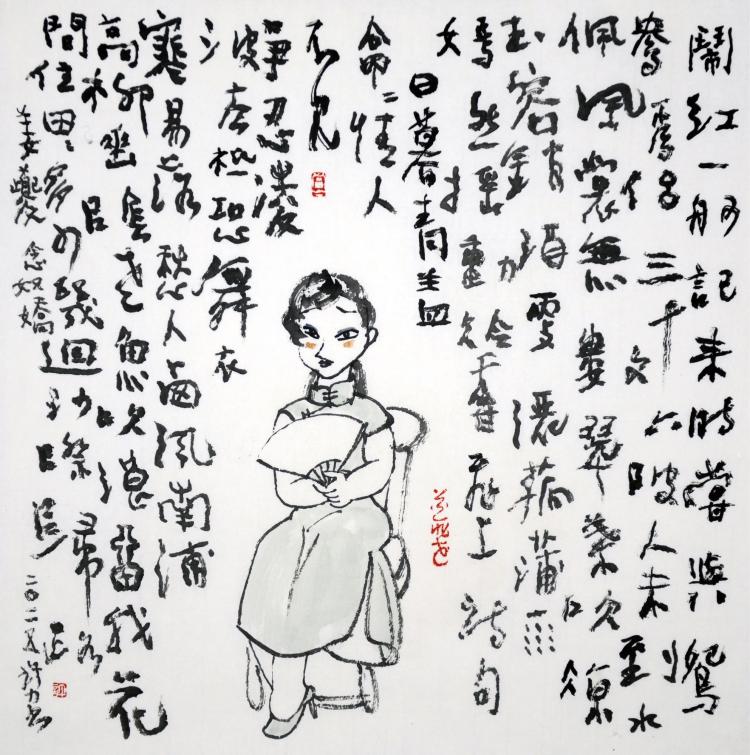 鬧紅一舸記來時嘗與鴛
鴦侶三十六陂人未至水
佩風裳無數翠葉吹涼
玉容銷酒更灑菰蒲雨
嫣然搖動冷香飛上詩句
日暮青蓋
亭亭情人
不見
爭忍凌
波去只恐舞衣
寒易落愁入西風南浦
高柳垂陰老魚吹浪留我花
間住田田多少幾迴沙際歸路
姜夔念奴嬌
二〇一五